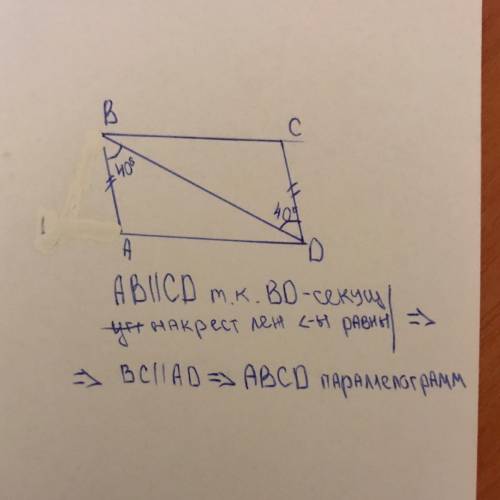 B
C
40°
40°
A
D
AB||CD т.к. BD-секущ
накрест леж <-ы равны | =>
=> BC||AD => ABCD параллелограмм